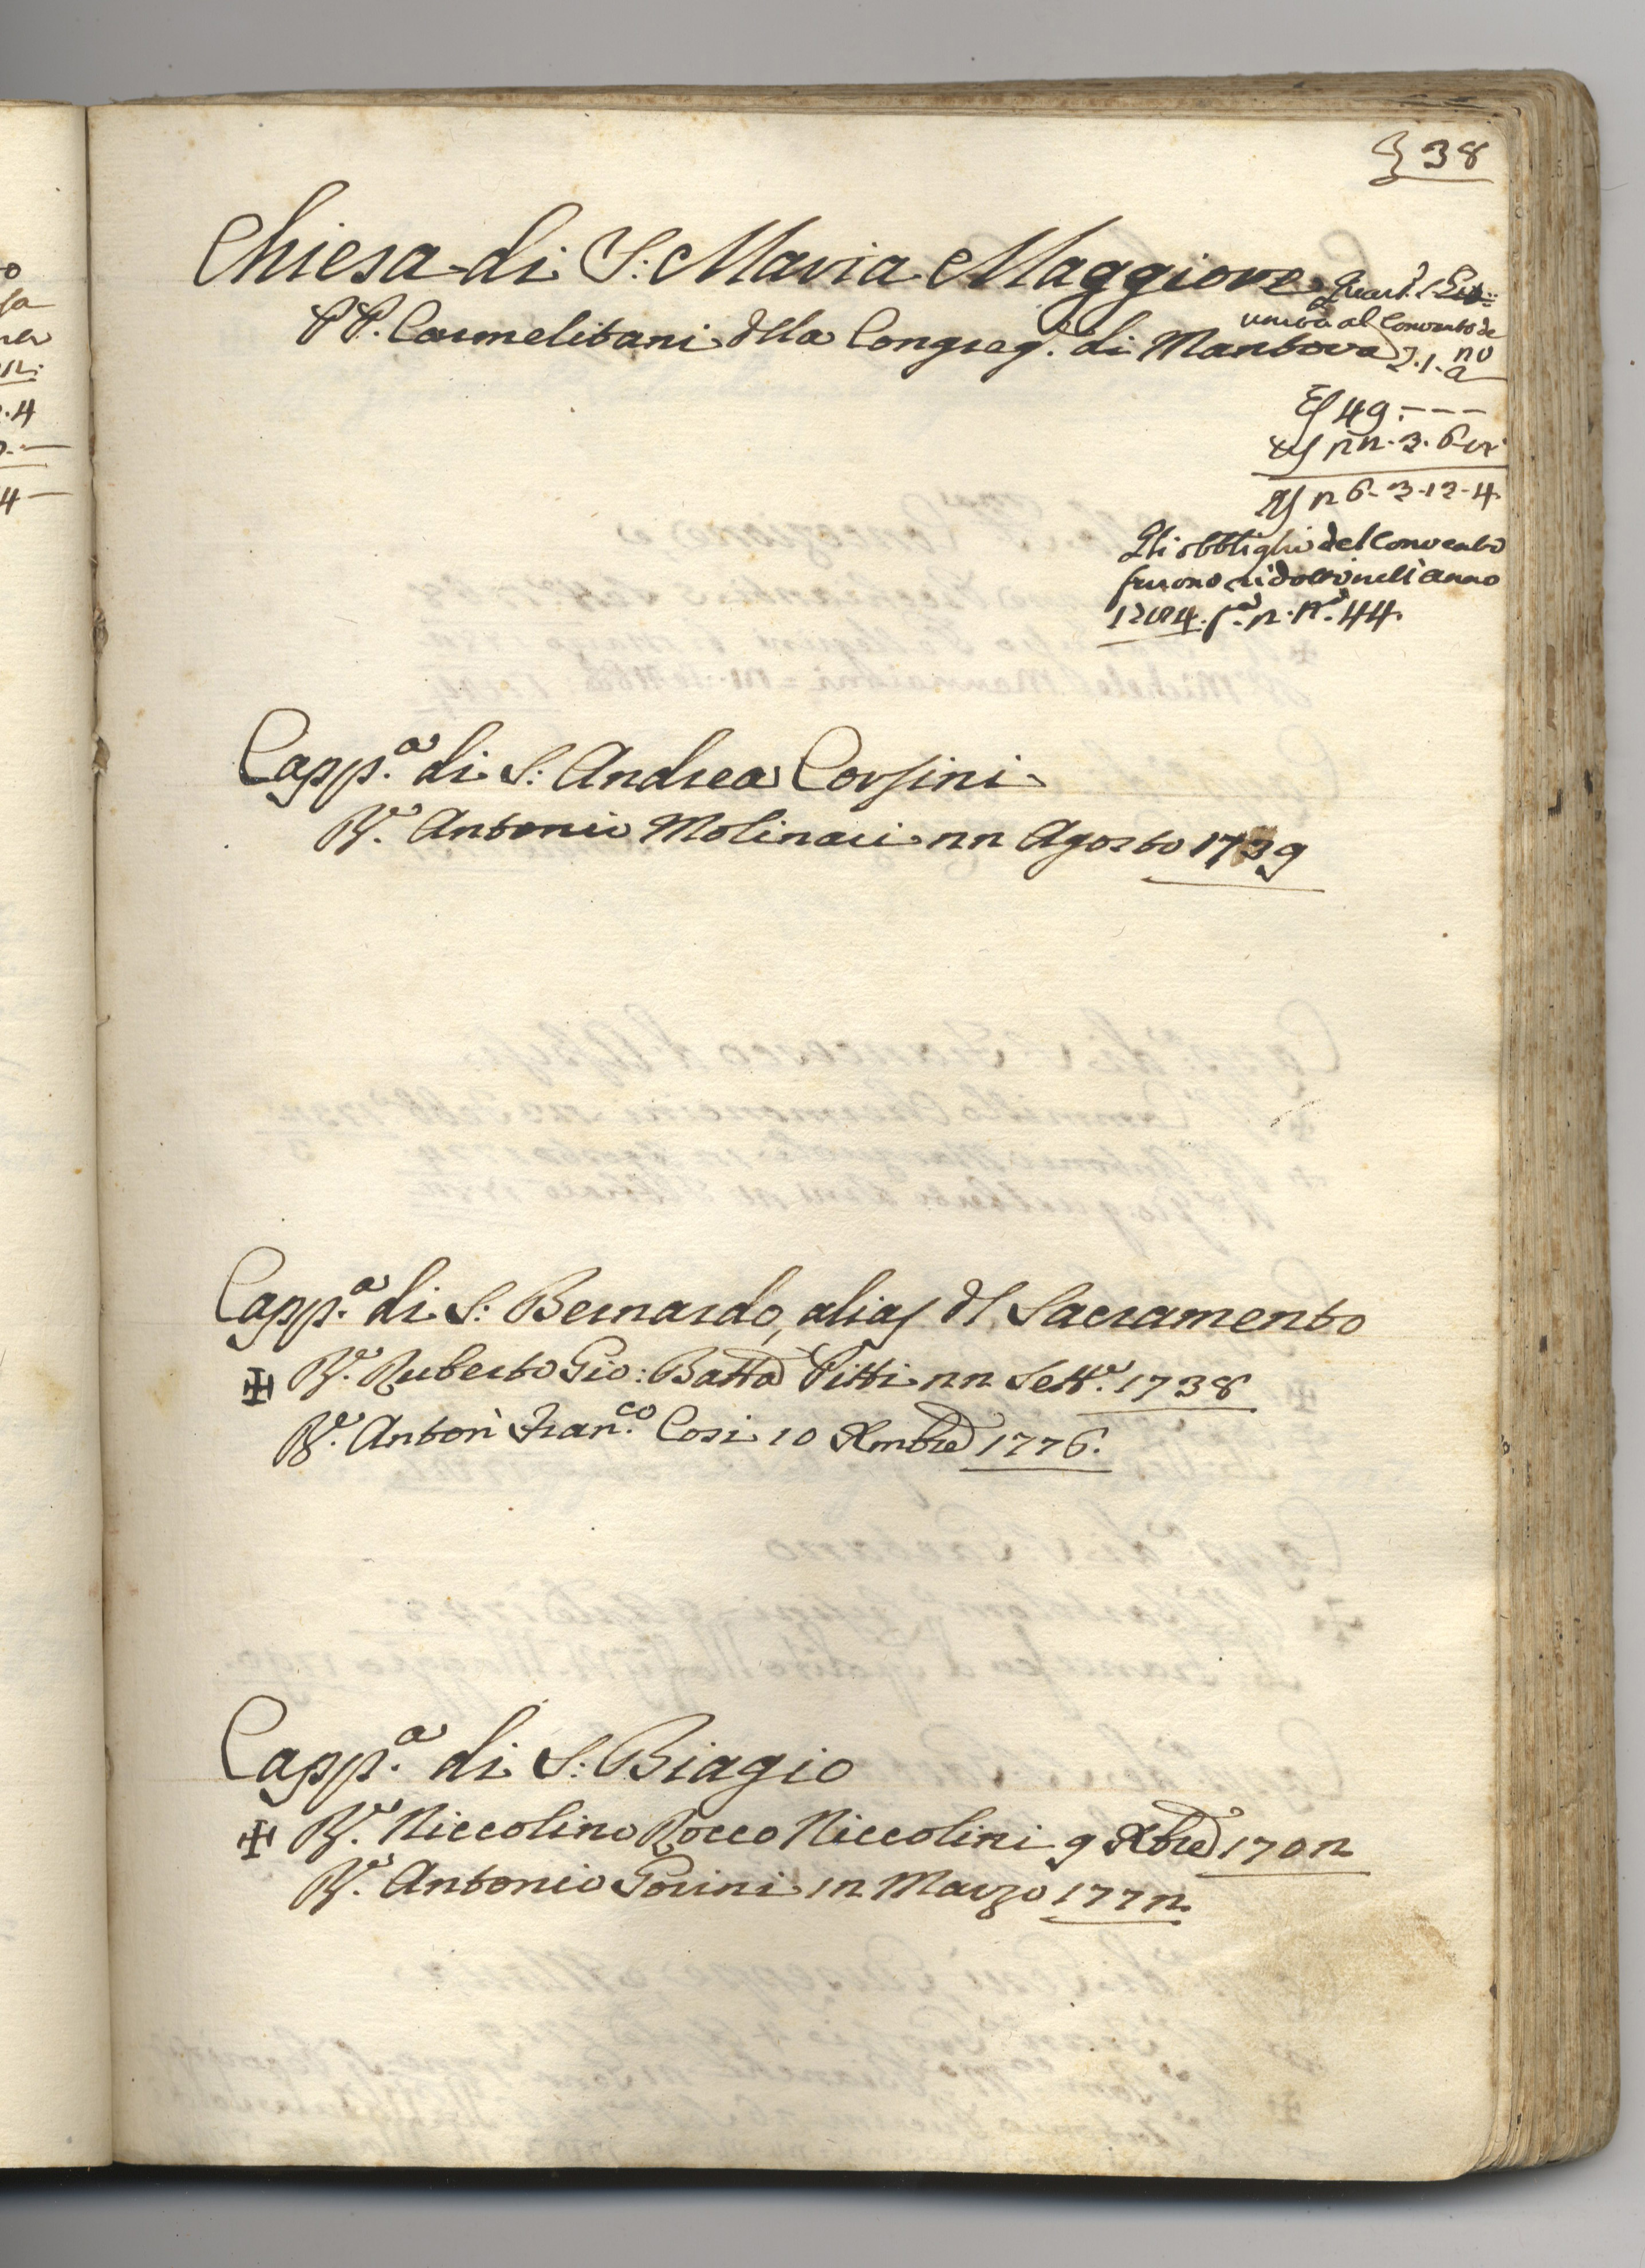 38
Chiesa di S: Maria Maggiore
PP. Carmelitani dlla Congreg.e di Mantova
unita al Convento de
49.---
3. 6
26-3-12-4
Gli obblighi del Convento
furono ridotti nell'anno
44.
Capp.a di S: Andrea Corsini
Rr. Antonio Molinari 22 Agosto 1739
Capp.a di S: Bernardo, alias dl Sacramento
✠ Rr. Ruberto Gio: Batta Pitti 22 Sett.e 1738
Rr. Anton Fran.co Cosi 10 Xmbre 1776.
Capp.a di S: Biagio
✠ Rr. Niccolino Rocco Niccolini 9 Xbre 1702
Rr. Antonio Gorini 12 Marzo 1772.